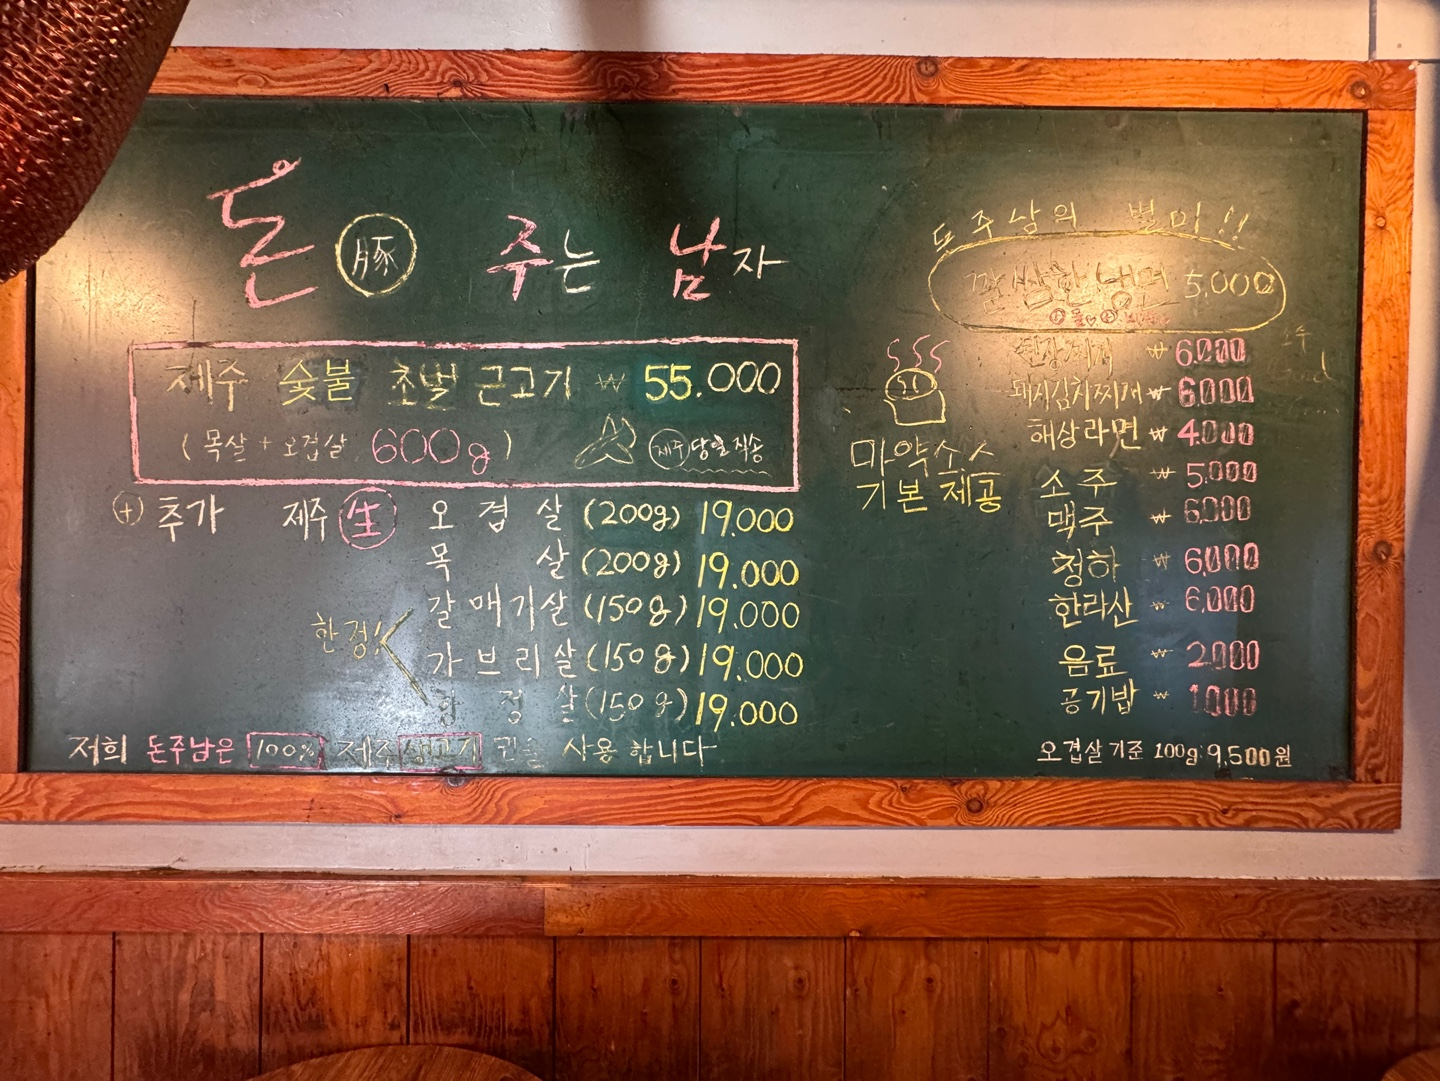 돈 豚 주는 남자
제주 숯불 초벌 근고기 ₩ 55.000
(목살 + 오겹살 600g) 제주 당일 직송
+ 추가 제주 生 오겹살 (200g) 19.000
목살 (200g) 19.000
한정!! 갈매기살 (150g) 19.000
가브리살 (150g) 19.000
항정살 (150g) 19.000
저희 돈주남은 100% 제주 생고기 만을 사용 합니다
돈주남의 별미!!
깔쌈한 냉면 5.000
물
마약소스
기본 제공
된장찌개 ₩ 6.000
돼지김치찌개 ₩ 6.000
해상라면 ₩ 4.000
소주 ₩ 5.000
맥주 ₩ 6.000
청하 ₩ 6.000
한라산 ₩ 6.000
음료 ₩ 2.000
공기밥 ₩ 1.000
오겹살 기준 100g: 9,500원